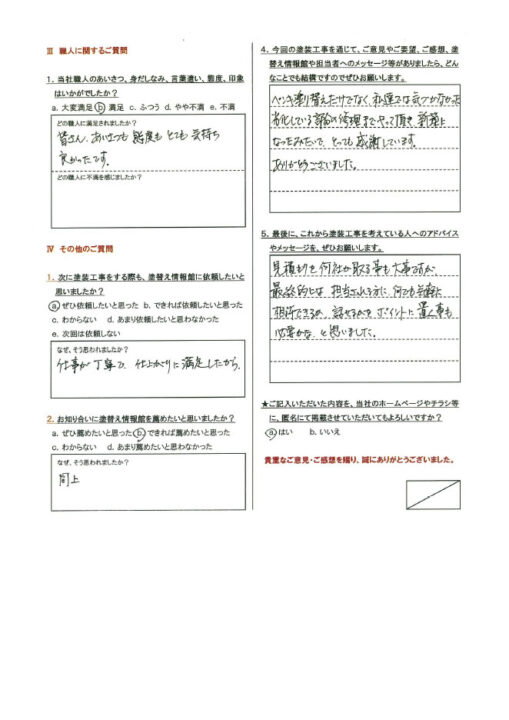 Ⅲ 職人に関するご質問
1. 当社職人のあいさつ、身だしなみ、言葉遣い、態度、印象
はいかがでしたか？
a. 大変満足 b. 満足 c. ふつう d. やや不満 e. 不満
どの職人に満足されましたか？
皆さん、あいさつも 態度も とても 気持ち
良かったです。
どの職人に不満を感じましたか？
Ⅳ その他のご質問
1. 次に塗装工事をする際も、塗替え情報館に依頼したいと
思いましたか？
a. ぜひ依頼したいと思った b. できれば依頼したいと思った
c. わからない d. あまり依頼したいと思わなかった
e. 次回は依頼しない
なぜ、そう思われましたか？
仕事が丁寧で、仕上がりに満足したから。
2. お知り合いに塗替え情報館を薦めたいと思いましたか？
a. ぜひ薦めたいと思った b. できれば薦めたいと思った
c. わからない d. あまり薦めたいと思わなかった
なぜ、そう思われましたか？
同上
4. 今回の塗装工事を通じて、ご意見やご要望、ご感想、塗
替え情報館や担当者へのメッセージ等がありましたら、どん
なことでも結構ですのでぜひお願いします。
ペンキ塗り替えだけでなく、私達では気づかなかった
劣化している の修理までやって頂き 新築に
なったみたいで、とっても感謝しています。
ありがとうございました。
5. 最後に、これから塗装工事を考えている人へのアドバイス
やメッセージを、ぜひお願いします。
見積もりを何社か取る事も大事ですが、
最終的には 担当される方に、何でも気軽に
相談できるか、話せるかを ポイントに置く事も
必要かな、と思いました。
★ご記入いただいた内容を、当社のホームページやチラシ等
に、匿名にて掲載させていただいてもよろしいですか？
a. はい b. いいえ
貴重なご意見・ご感想を賜り、誠にありがとうございました。